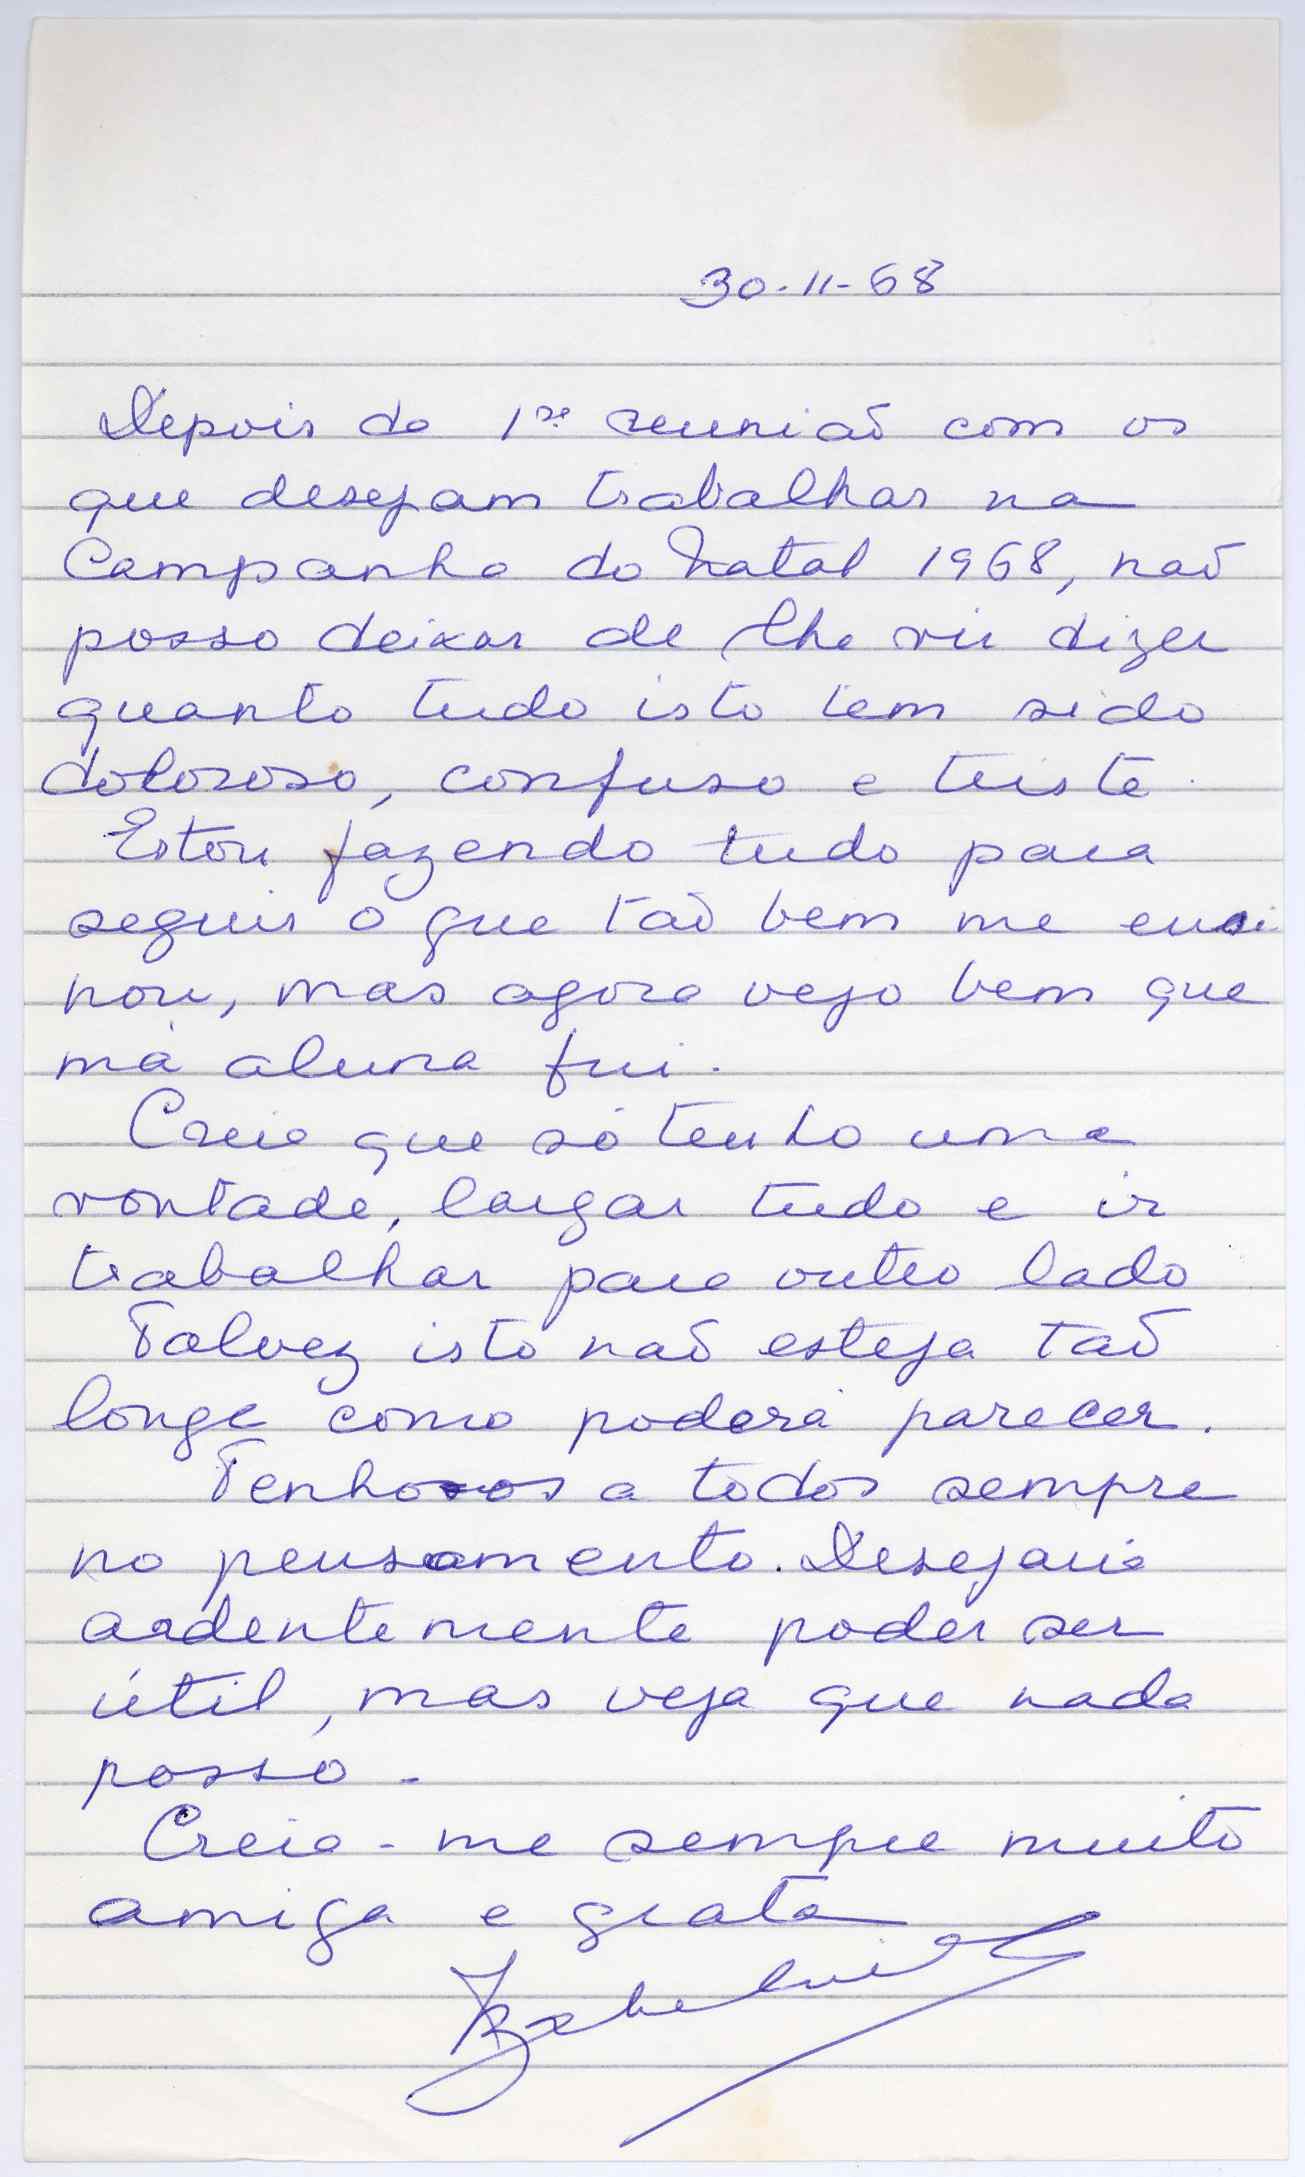 30-11-68
Depois da 1ª reunião com os
que desejam trabalhar na
Campanha do Natal 1968, não
posso deixar de lhe vir dizer
quanto tudo isto tem sido
doloroso, confuso e triste.
Estou fazendo tudo para
seguir o que tão bem me ensi
nou, mas agora vejo bem que
má aluna fui.
Creia que só tenho uma
vontade, largar tudo e ir
trabalhar para outro lado
Talvez isto não esteja tão
longe como poderá parecer.
Tenho-os a todos sempre
no pensamento. Desejaria
ardentemente poder ser
útil, mas veja que nada
posso -
Creia-me sempre muito
amiga e grata